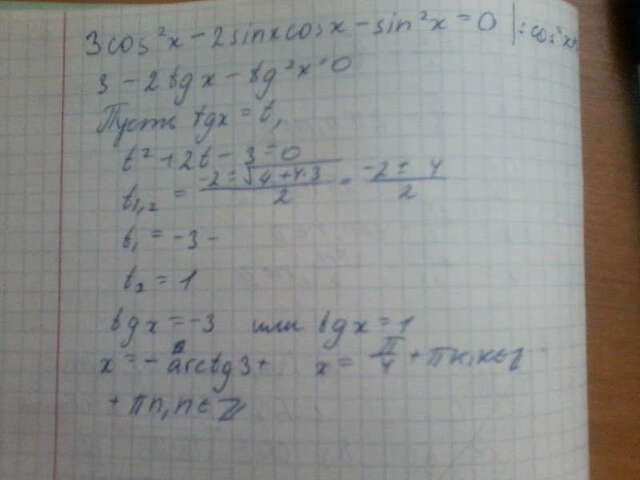 3cos²x - 2sinxcosx - sin²x = 0 | : cos²x≠
3 - 2tgx - tg²x = 0
Пусть tgx = t,
t² + 2t - 3 = 0
t₁,₂ = (-2 ± √(4+4·3))/2 = (-2 ± 4)/2
t₁ = -3
t₂ = 1
tgx = -3 или tgx = 1
x = - arctg3 + x = π/4 + πk, k∈Z
+ πn, n∈Z